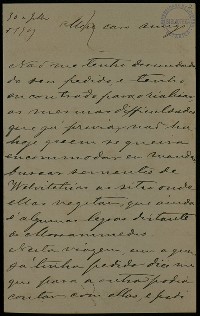 Meu caro amigo
Não me tenho descuidado
do seu pedido e tenho
encontrado para realisar
as mesmas difficuldades
que previa, não ha
hoje quem se queira
encommodar em mandar
buscar sementes de
Welwitschias ao sitio onde
ellas vegetam, que ainda
é algumas legoas distante
de Mossamedes.
Nesta viagem em a qual
já tinha pedido dizem
que para a outra podia
contar com ellas, e pedi